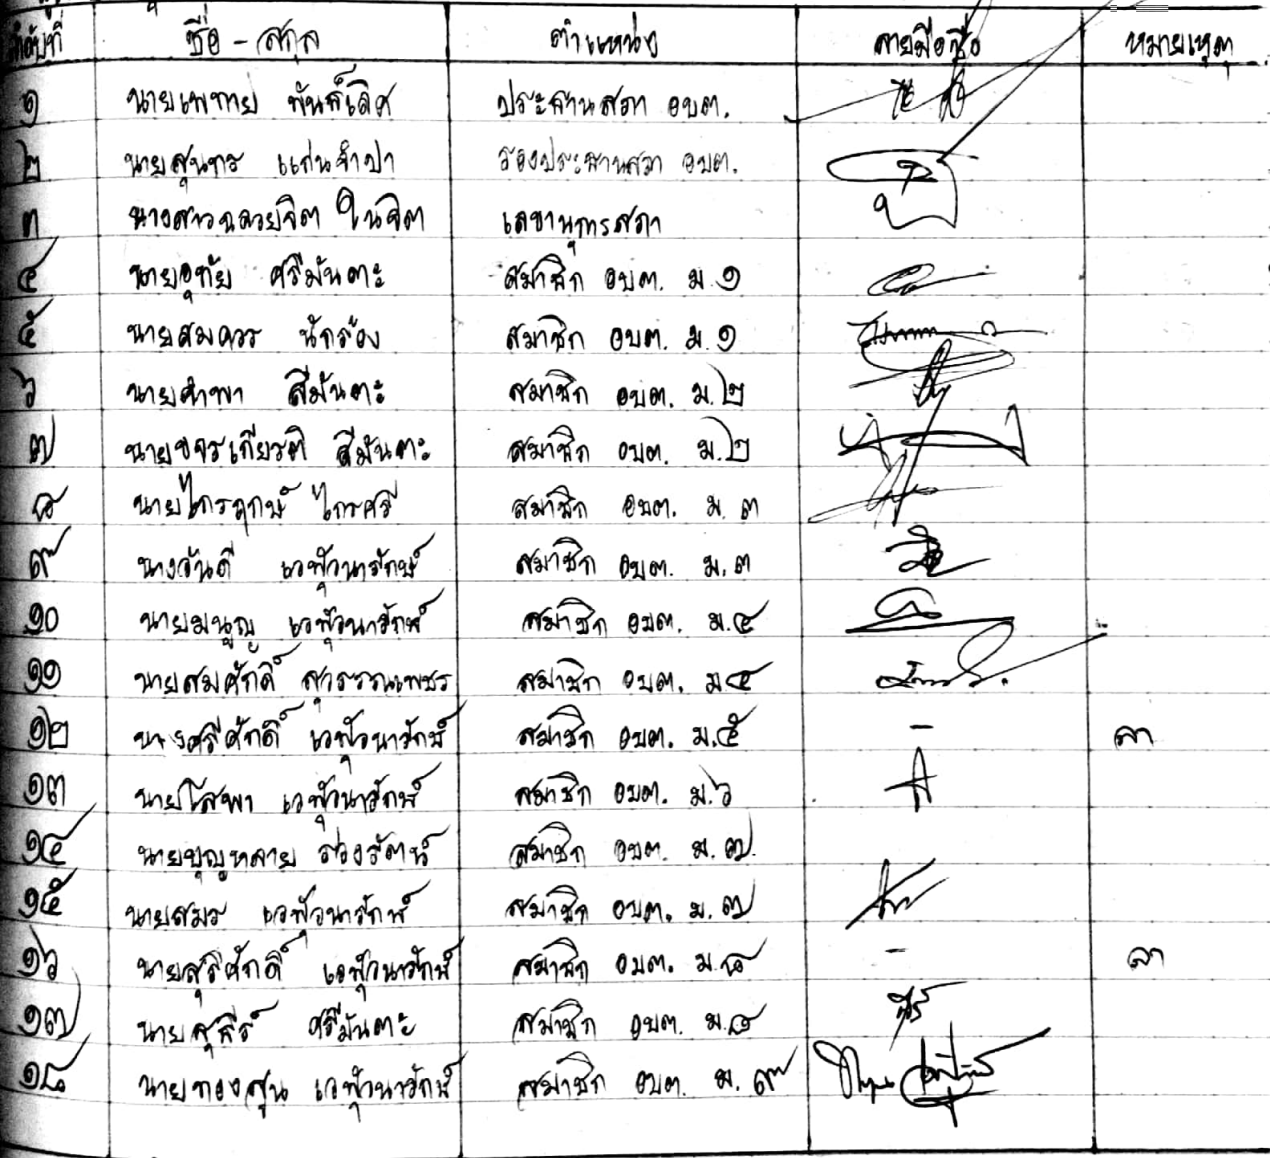 ลำดับที่ ชื่อ - สกุล ตำแหน่ง ลายมือชื่อ หมายเหตุ
๑ นายเพทาย พันธ์เลิศ ประธานสภา อบต.
๒ นายสุนทร แก่นจำปา รองประธานสภา อบต.
๓ นางสาวฉลวยจิต ในจิต เลขานุการสภา
๔ นายอุทัย ศรีมันตะ สมาชิก อบต. ม.๑
๕ นายสมควร นักร้อง สมาชิก อบต. ม.๑
๖ นายคำพา สีมันตะ สมาชิก อบต. ม.๒
๗ นายขจรเกียรติ สีมันตะ สมาชิก อบต. ม.๒
๘ นายไกรฤกษ์ ไกรศรี สมาชิก อบต. ม.๓
๙ นางวันดี เวฬุวนารักษ์ สมาชิก อบต. ม.๓
๑๐ นายมนูญ เวฬุวนารักษ์ สมาชิก อบต. ม.๔
๑๑ นายสมศักดิ์ สุวรรณเพชร สมาชิก อบต. ม๔
๑๒ นายศรีศักดิ์ เวฬุวนารักษ์ สมาชิก อบต. ม.๕ - ลา
๑๓ นายโสพา เวฬุวนารักษ์ สมาชิก อบต. ม.๖
๑๔ นายบุญหลาย ช่วงรัตน์ สมาชิก อบต. ม.๗
๑๕ นายสมร เวฬุวนารักษ์ สมาชิก อบต. ม.๗
๑๖ นายสุรศักดิ์ เวฬุวนารักษ์ สมาชิก อบต. ม.๘ - ลา
๑๗ นายสุธีร์ ศรีมันตะ สมาชิก อบต. ม.๘
๑๘ นายทองสุน เวฬุวนารักษ์ สมาชิก อบต. ม.๙